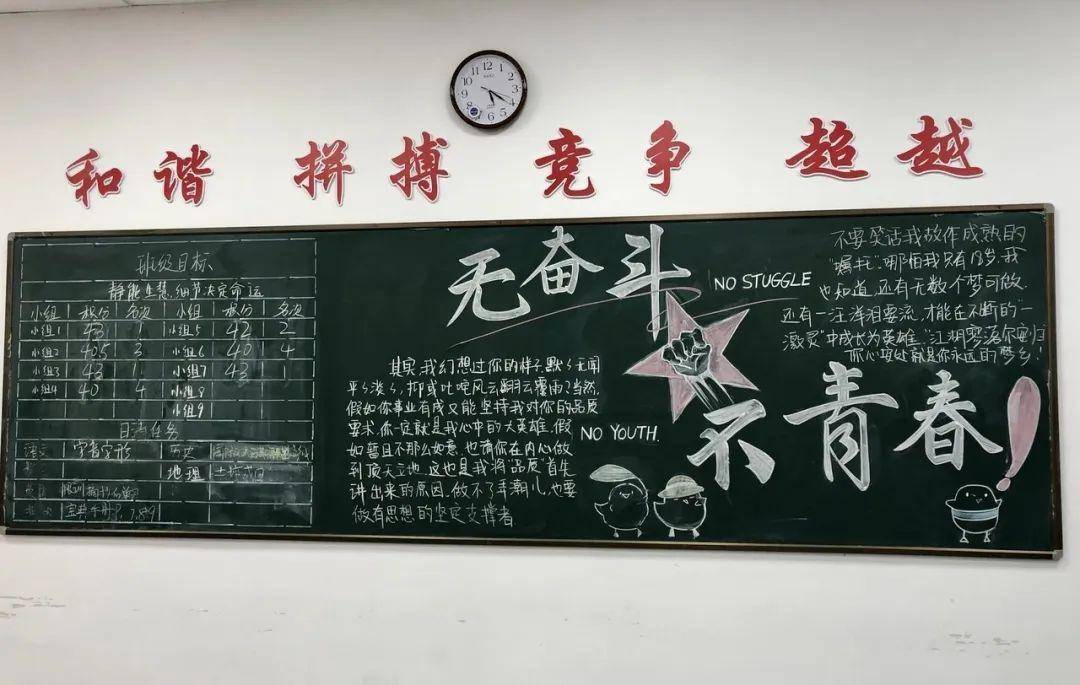 和谐 拼搏 竞争 超越
班级目标
静能生慧,细节决定命运
小组 积分 名次 小组 积分 名次
小组1 43 1 小组5 42 2
小组2 40.5 3 小组6 40 4
小组3 43 1 小组7 43
小组4 40 4 小组8
小组9
日清任务
语文 字音字形 历史
地理
无奋斗
NO STUGGLE
不青春!
NO YOUTH.
其实,我幻想过你的样子,默默无闻
平平淡淡,抑或叱咤风云翻云覆雨?当然,
假如你事业有成又能坚持我对你的品质
要求,你一定就是我心中的大英雄,假
如暂且不那么如意,也请你在内心做
到顶天立地,这也是我将品质首先
讲出来的原因,做不了弄潮儿,也要
做有思想的坚定支撑者
不要笑话我故作成熟的
"嘱托",哪怕我只有18岁,我
也知道,还有无数个梦可做,
还有一汪洋泪要流,才能在不断的"
激灵"中成长为英雄,"江湖寥落尔安归
而心安处就是你永远的梦乡!